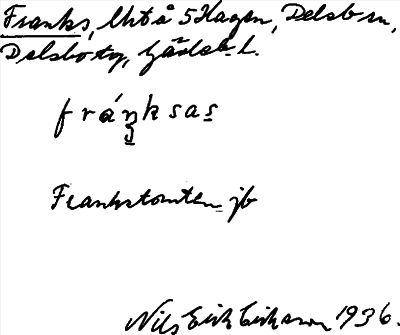 Franks, Utså 5 Hagen, Delsb sn,
Delsbo tg, Gävleb. l.
fráŋksas
Frankstomten jb
Nils Erik Eriksson 1936.